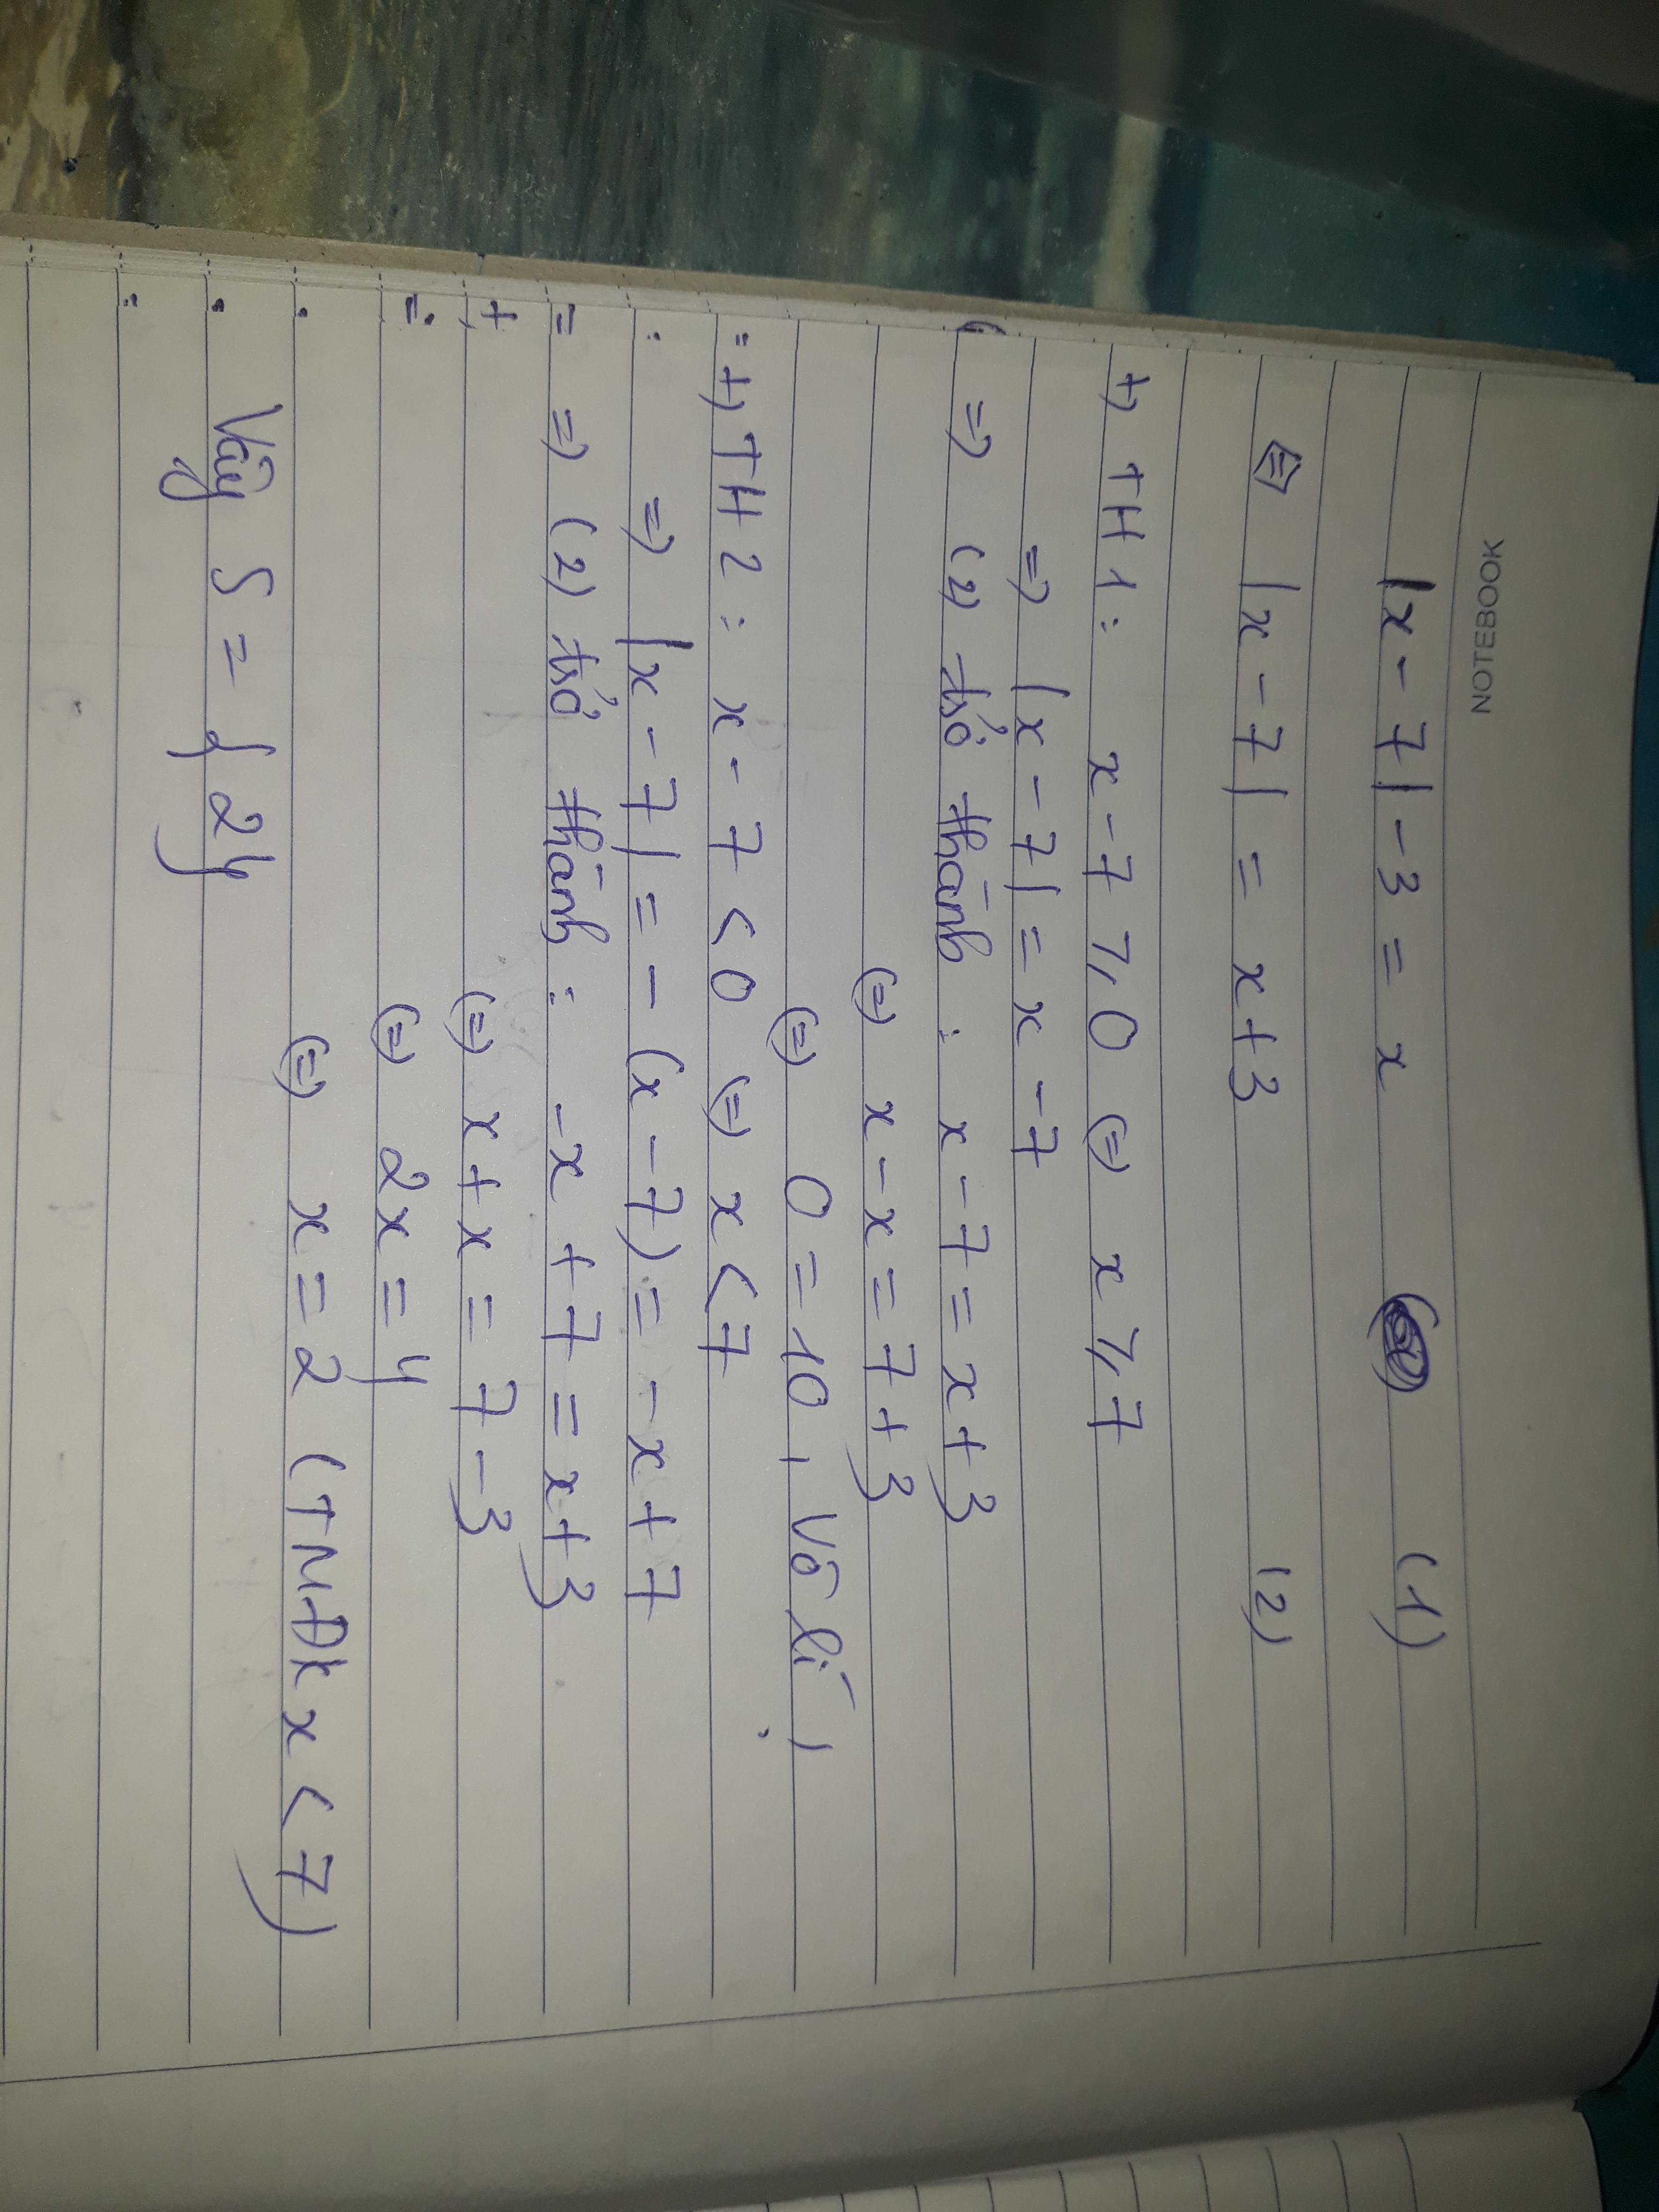 NOTEBOOK
|x - 7| - 3 = x (1)
⇔ |x - 7| = x + 3 (2)
+) TH1: x - 7 ≥ 0 (=) x ≥ 7
=> |x - 7| = x - 7
=> (2) trở thành : x - 7 = x + 3
(=) x - x = 7 + 3
(=) 0 = 10, Vô lí,
+) TH2: x - 7 < 0 (=) x < 7
=> |x - 7| = - (x - 7) = - x + 7
=> (2) trở thành : -x + 7 = x + 3
(=) x + x = 7 - 3
(=) 2x = 4
(=) x = 2 (TMĐk x < 7)
Vậy S = {2}